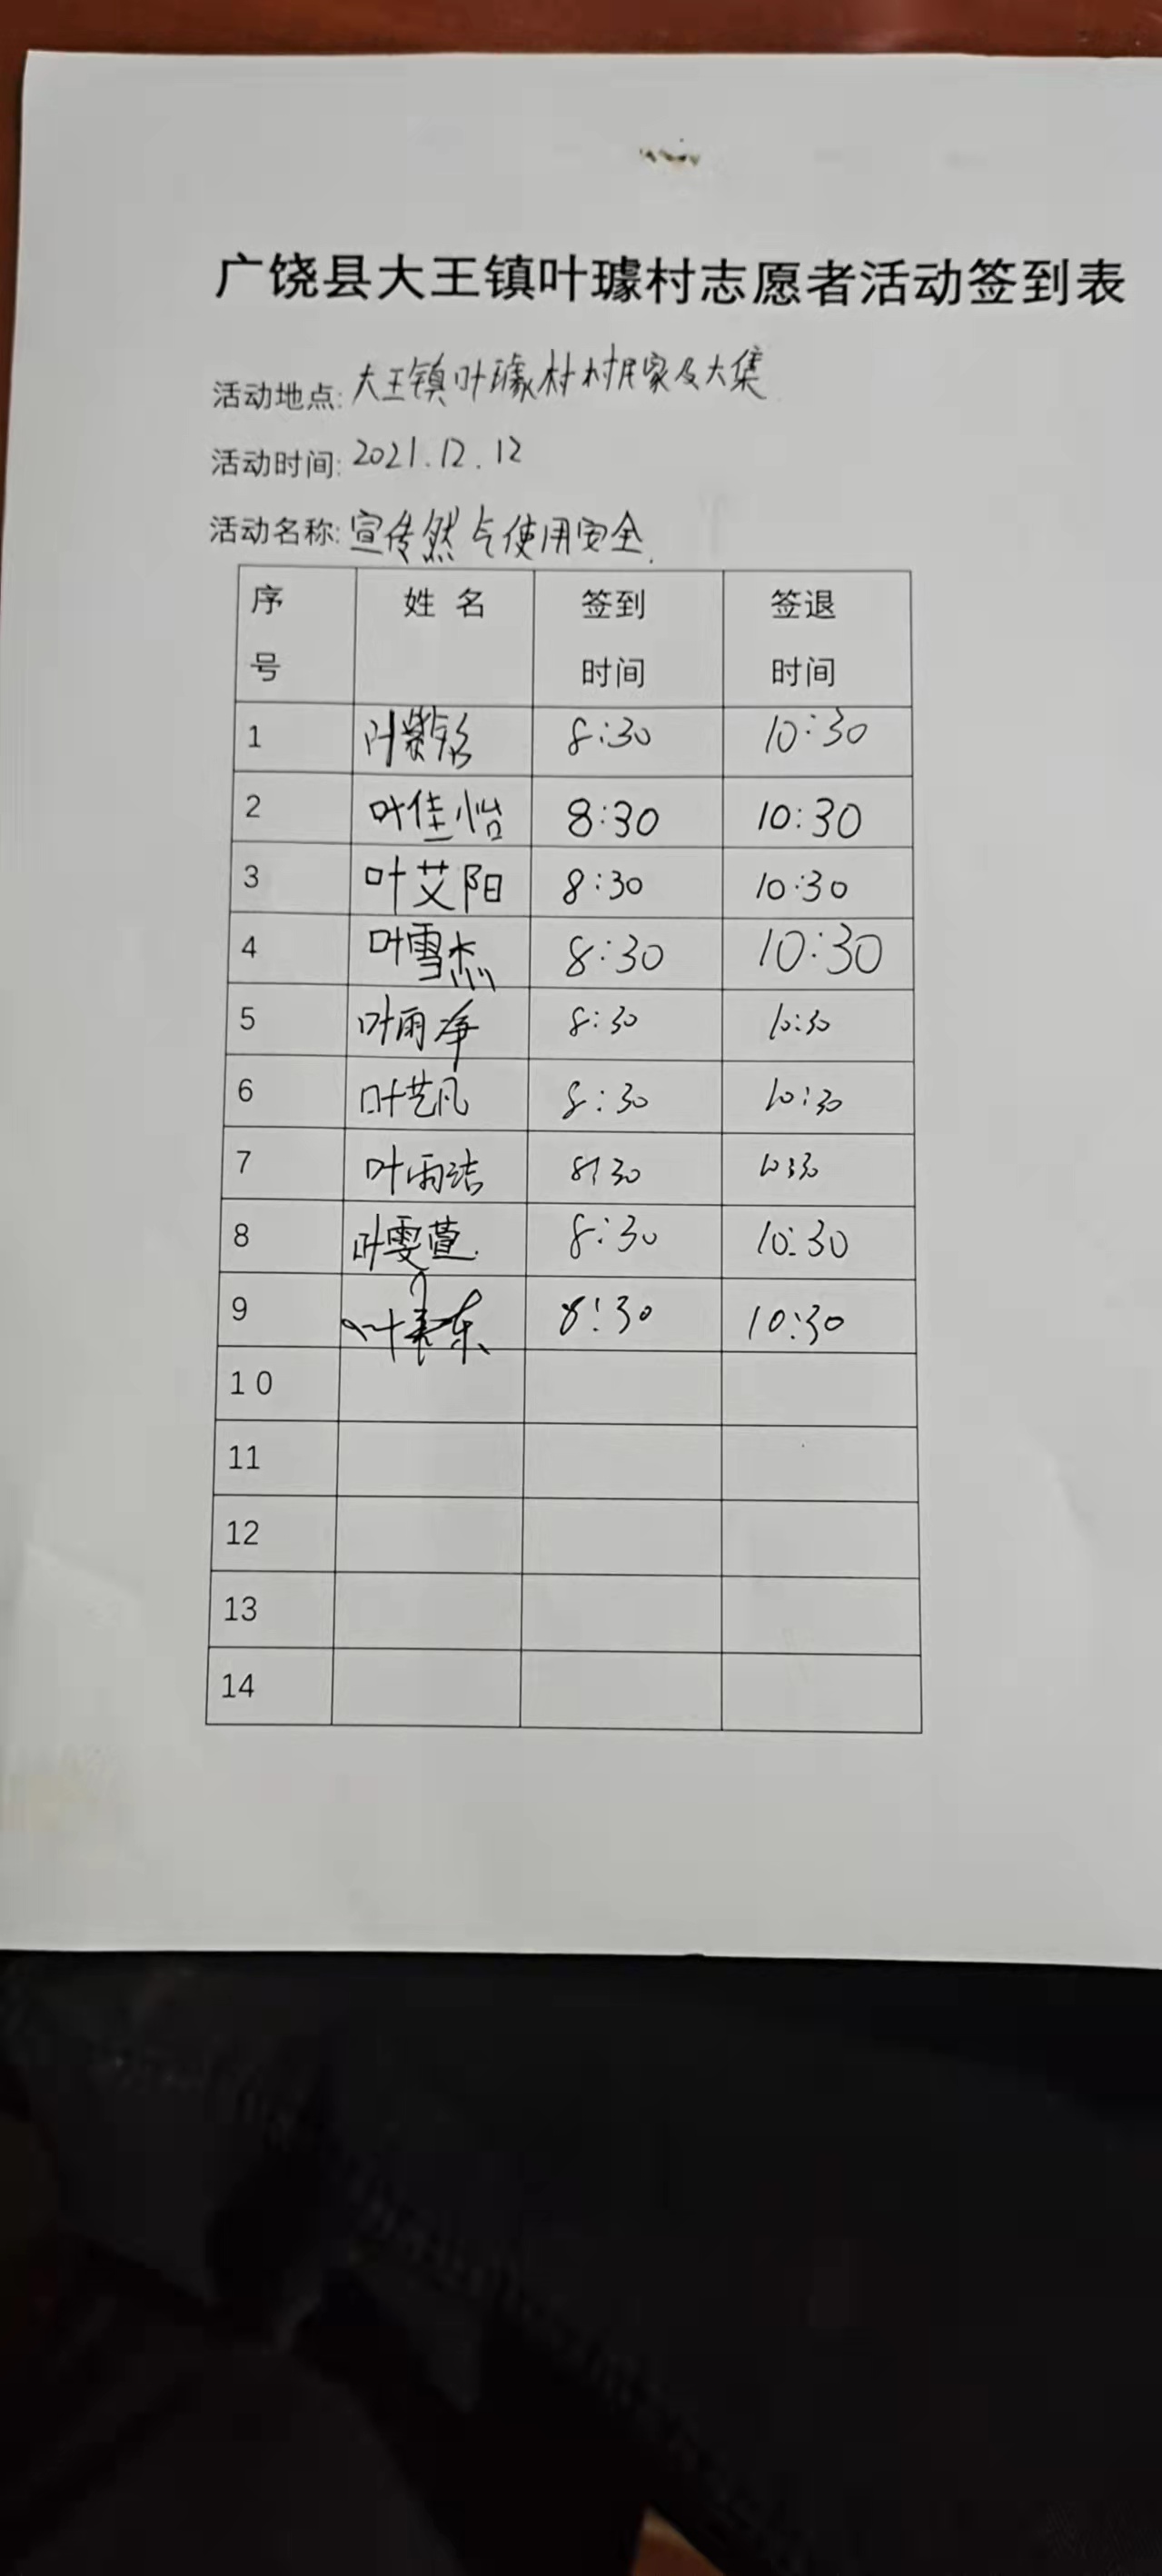 广饶县大王镇叶璩村志愿者活动签到表
活动地点: 大王镇叶璩村村民家及大集
活动时间: 2021.12.12
活动名称: 宣传然气使用安全.
序号 姓 名 签到时间 签退时间
1 叶紫 8:30 10:30
2 叶佳怡 8:30 10:30
3 叶艾阳 8:30 10:30
4 叶雪杰 8:30 10:30
5 叶雨净 8:30 10:30
6 叶艺凡 8:30 10:30
7 叶雨洁 8:30 10:30
8 叶雯萱. 8:30 10:30
9 叶 东 8:30 10:30
10
11
12
13
14